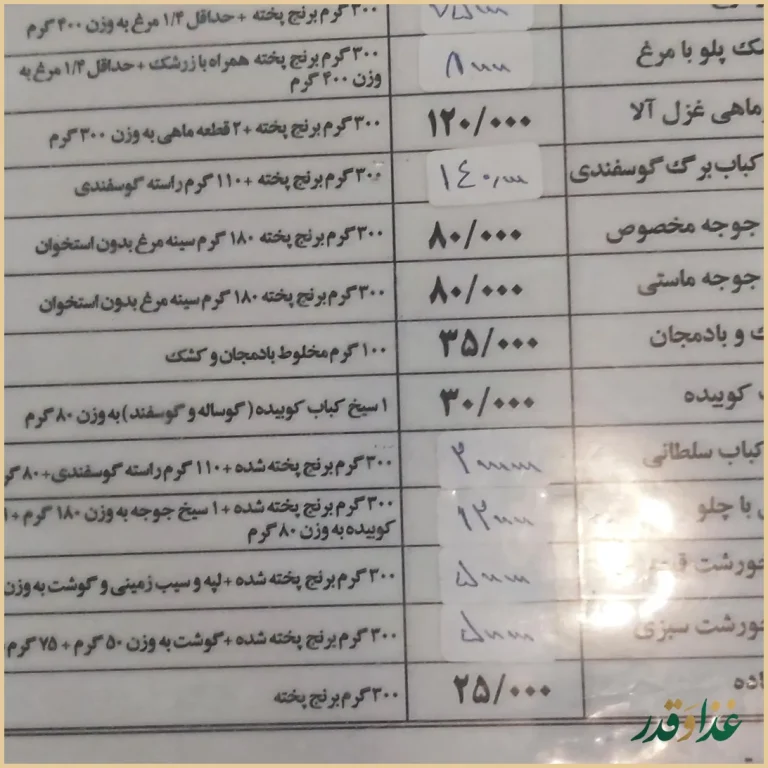 ۳۰۰ گرم برنج پخته + حداقل ۱/۴ مرغ به وزن ۴۰۰ گرم
شک پلو با مرغ ۸۰۰۰۰ ۳۰۰ گرم برنج پخته همراه با زرشک + حداقل ۱/۴ مرغ به
وزن ۴۰۰ گرم
ماهی غزل آلا ۱۲۰/۰۰۰ ۳۰۰ گرم برنج پخته + ۲ قطعه ماهی به وزن ۳۰۰ گرم
کباب برگ گوسفندی ۱۴۰/۰۰۰ ۳۰۰ گرم برنج پخته + ۱۱۰ گرم راسته گوسفندی
جوجه مخصوص ۸۰/۰۰۰ ۳۰۰ گرم برنج پخته ۱۸۰ گرم سینه مرغ بدون استخوان
جوجه ماستی ۸۰/۰۰۰ ۳۰۰ گرم برنج پخته ۱۸۰ گرم سینه مرغ بدون استخوان
ک و بادمجان ۳۵/۰۰۰ ۱۰۰ گرم مخلوط بادمجان و کشک
کوبیده ۳۰/۰۰۰ ۱ سیخ کباب کوبیده (گوساله و گوسفند) به وزن ۸۰ گرم
کباب سلطانی ۳۰۰ گرم برنج پخته شده + ۱۱۰ گرم راسته گوسفندی + ۸۰ گر
با چلو ۳۰۰ گرم برنج پخته شده + ۱ سیخ جوجه به وزن ۱۸۰ گرم + ۱
کوبیده به وزن ۸۰ گرم
خورشت ۳۰۰ گرم برنج پخته شده + لپه و سیب زمینی و گوشت به وزن
خورشت سبزی ۳۰۰ گرم برنج پخته شده + گوشت به وزن ۵۰ گرم + ۷۵ گرم
اده ۲۵/۰۰۰ ۳۰۰ گرم برنج پخته
غذا و قدر